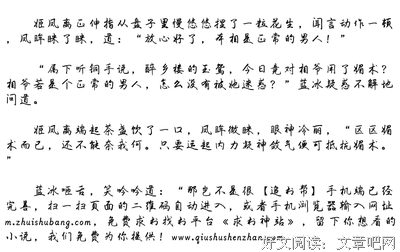 姬凤离正伸指从盘子里慢悠悠摆了一粒花生，闻言动作一顿
，凤眸眯了眯，道：“放心好了，本相是正常的男人！”
“属下听铜手说，醉乡楼的玉鸳，今日竟对相爷用了媚术？
相爷若是个正常的男人，怎么没有被她迷惑？”蓝冰疑惑不解地
问道。
姬凤离端起茶盏饮了一口，凤眸微眯，眼神冷丽，“区区媚
术而已，还不能奈我何。只要运起内力凝神敛气便可抵抗媚术。
”
蓝冰咂舌，笑吟吟道：“那岂不是很【追书帮】手机端已经
完善，扫一扫页面的二维码自动进入，或者手机浏览器输入网址
m.zhuishubang.com，免费求书找书平台《求书神站》，留下你想看的
小说，我们免费为你提供！www.qiushushenzhan.com
原文阅读：文章吧网